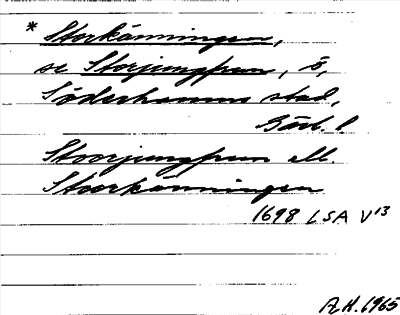 * Storkänningen,
se Storjungfrun, ö,
Söderhamns stad,
Gävl. l
Stoorjungfrun ell.
Stoorkänningen
1698 LSA V¹³
A.H. 1965